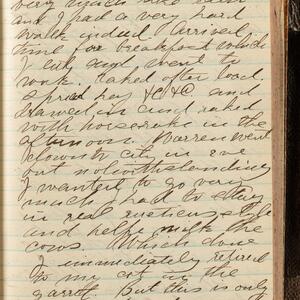 very much like rain
and I had a very hard
walk indeed. Arrived
time for breakfast which
I eat and went to
work. Raked after load,
spread hay &c &c and
drawed in and raked
with horserake in the
afternoon. Warren went
down to city in eve
but notwithstanding
I wanted to go very
much, had to stay
in real rusticus style
and help milk the
cows. Which done
I immediately retired
to my cot in the
garrett. But this is only